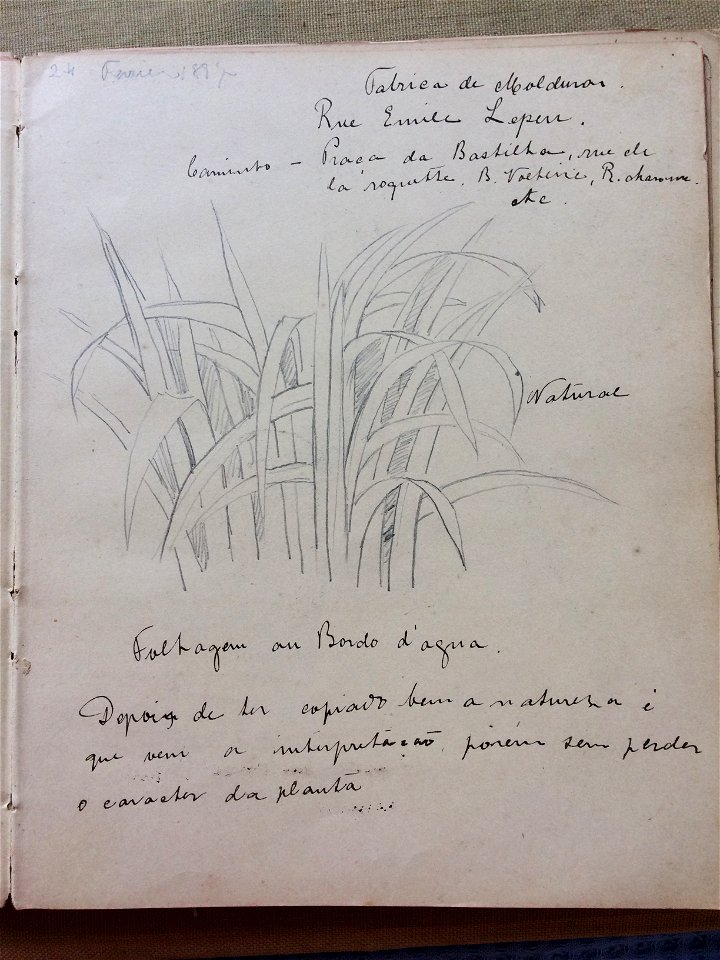 24 Fevrier 189
Fabrica de Molduras.
Rue Emile Leperr.
Caminho – Praça da Bastilha, rue de
la roquette. B. Volterie, R. charonne.
etc.
Natural
Folhagem au Bordo d'agua.
Depois de ter copiado bem a natureza é
que vem a interpretação, porém sem perder
o caracter da planta